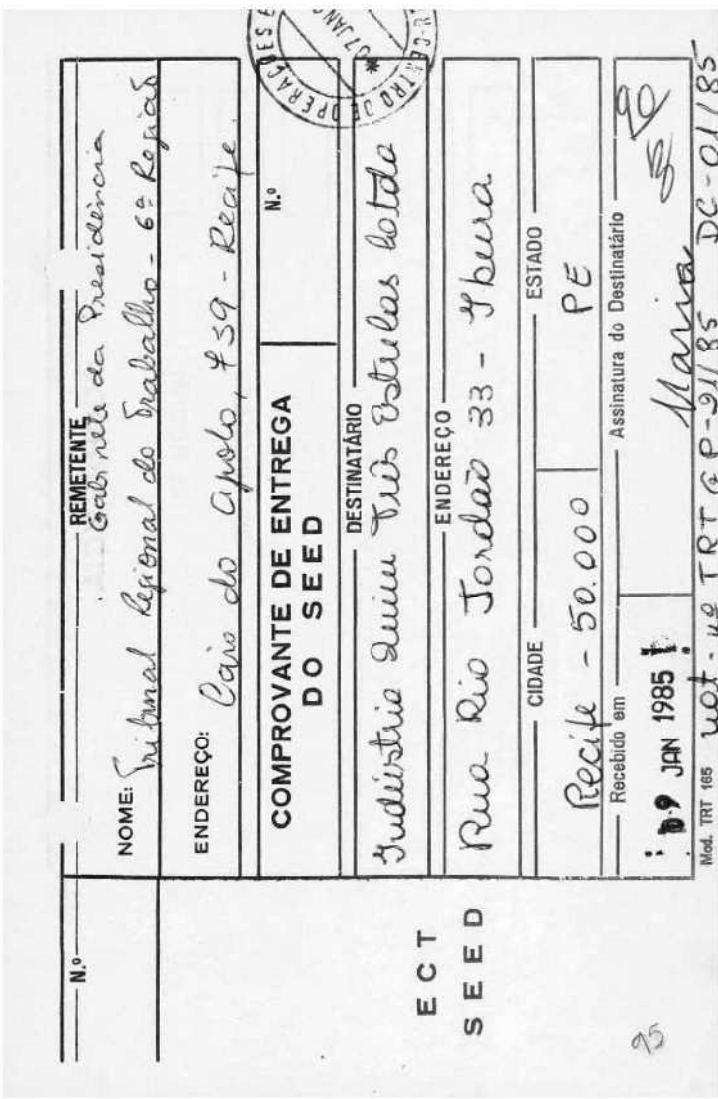 N.º
REMETENTE
Gabinete da Presidência
NOME: Tribunal Regional do Trabalho - 6ª Região
ENDEREÇO: Cais do Apolo, 739 - Recife
COMPROVANTE DE ENTREGA
DO SEED
N.º
DESTINATÁRIO
Indústria Três Estrelas
ENDEREÇO
Rua Rio Jordão 33 - Ibura
CIDADE
ESTADO
Recife - 50.000
PE
Recebido em
Assinatura do Destinatário
09 JAN 1985
Maria
Mod. TRT 165
not. nº TRT GP-21/85 DC-01/85
ECT
SEED
95
CENTRO DE OPERAÇÕES E
07 JAN